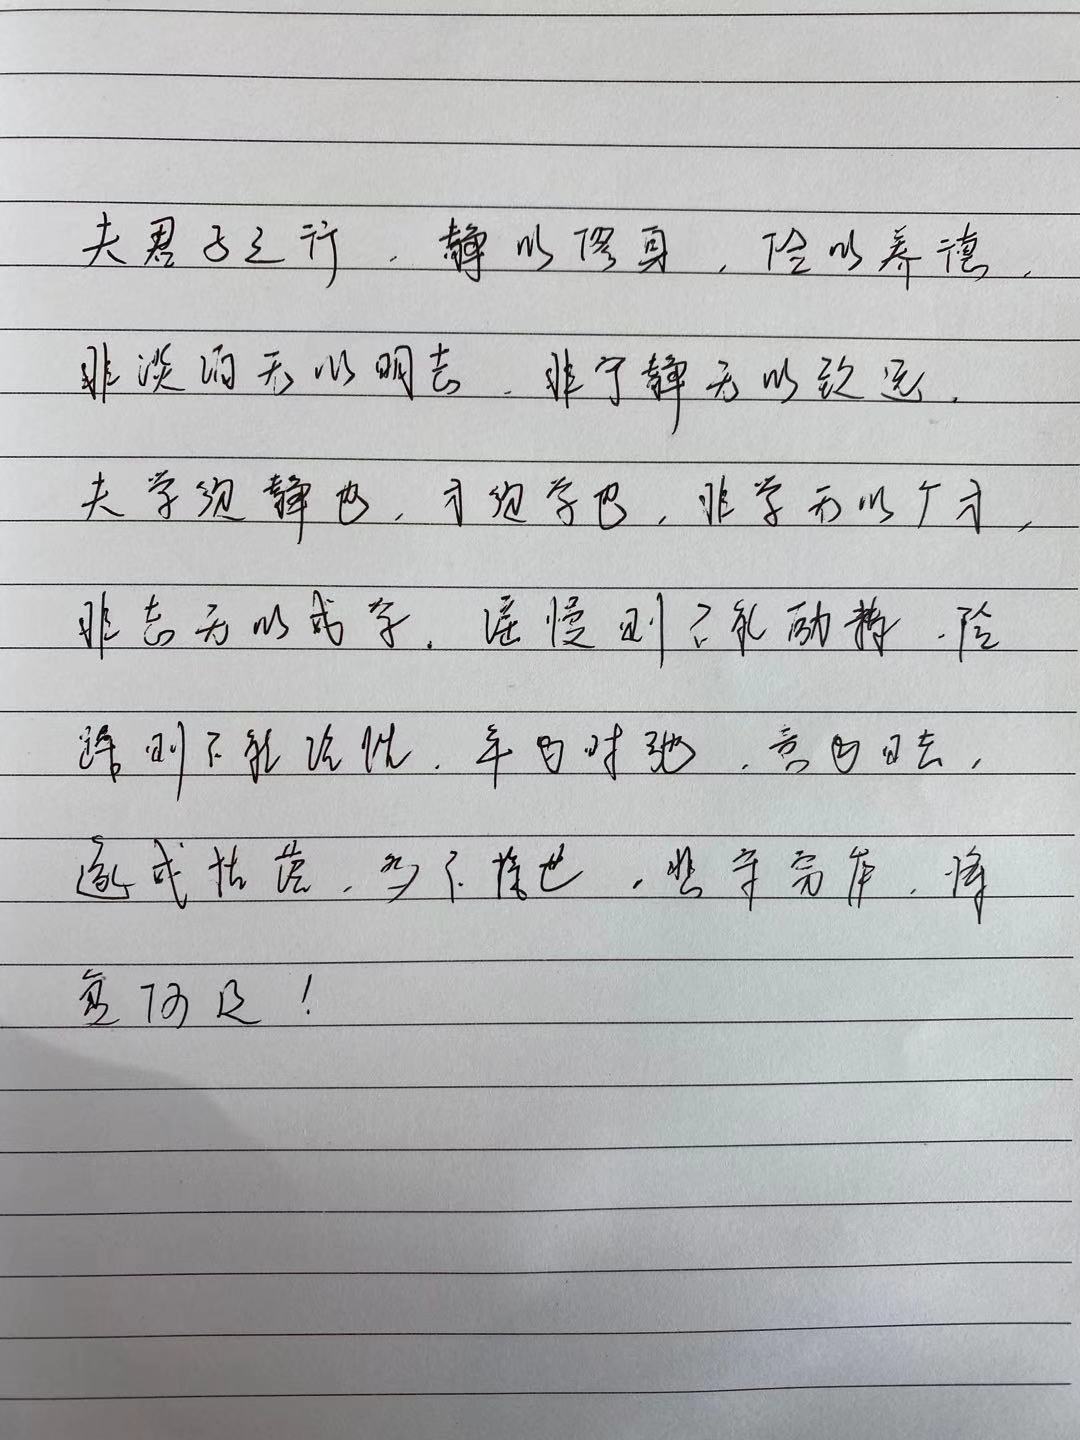 夫君子之行，静以修身，俭以养德，
非淡泊无以明志，非宁静无以致远，
夫学须静也，才须学也，非学无以广才，
非志无以成学。淫慢则不能励精，险
躁则不能治性，年与时驰，意与日去，
遂成枯落，多不接世，悲守穷庐，将
复何及！